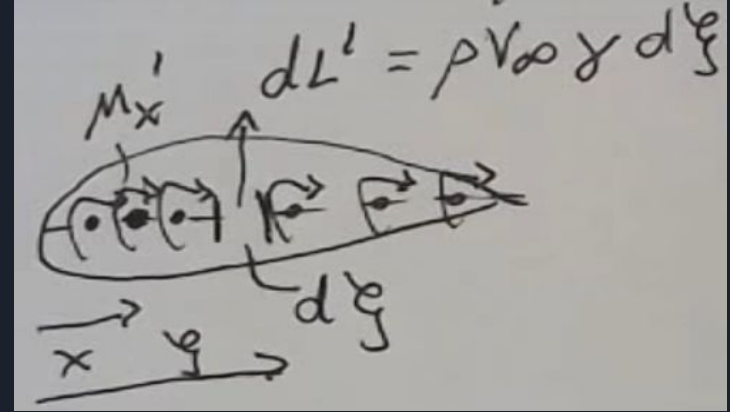 dL' = ρV∞ γ dξ
Mx'
dξ
x
ξ